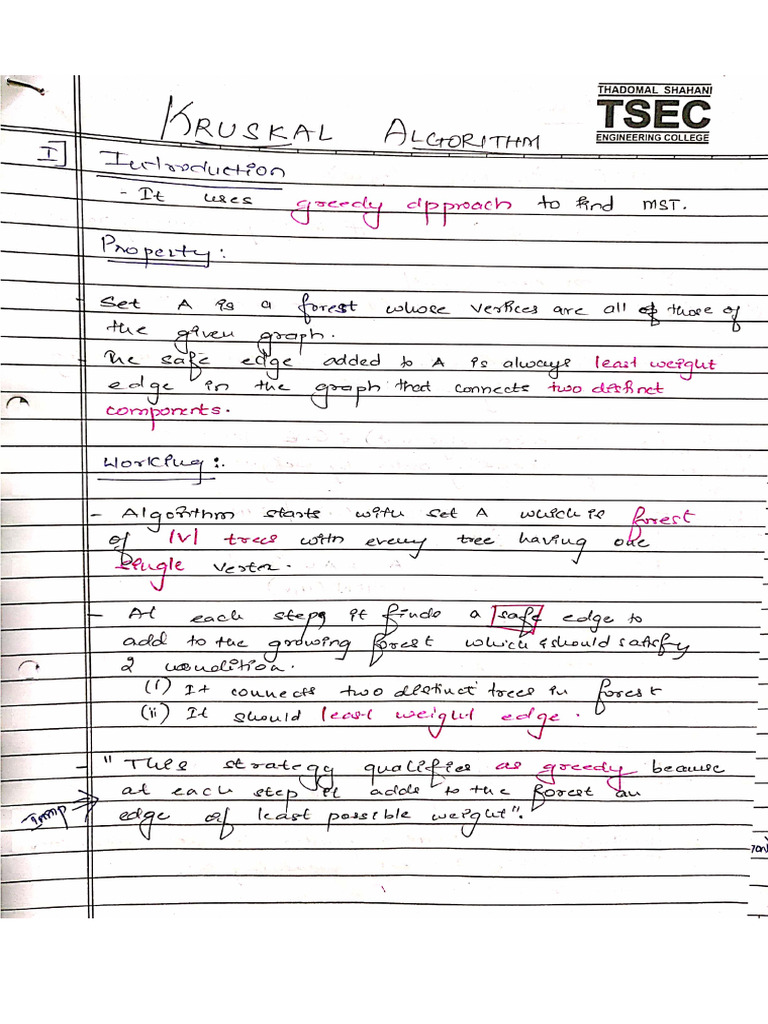 THADOMAL SHAHANI
TSEC
ENGINEERING COLLEGE
KRUSKAL ALGORITHM
I] Introduction
- It uses greedy approach to find MST.
Property:
- Set A is a forest whose vertices are all of those of
the given graph.
- The safe edge added to A is always least weight
edge in the graph that connects two distinct
components.
Working:
- Algorithm starts with set A which is forest
of |V| trees with every tree having one
single vertex.
- At each step, it finds a safe edge to
add to the growing forest which should satisfy
2 condition.
(i) It connects two distinct trees in forest
(ii) It should least weight edge.
- "This strategy qualifies as greedy because
at each step it adds to the forest an
Imp
edge of least possible weight".